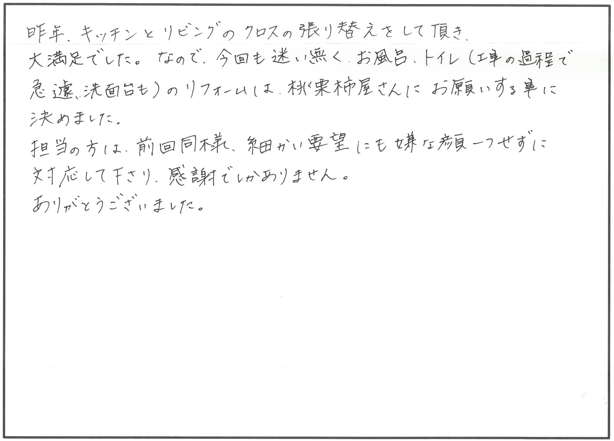 昨年、キッチンとリビングのクロスの張り替えをして頂き、
大満足でした。なので、今回も迷い無く、お風呂、トイレ（工事の過程で
急遽、洗面台も）のリフォームは、桃栗柿屋さんにお願いする事に
決めました。
担当の方は、前回同様、細かい要望にも嫌な顔一つせずに
対応して下さり、感謝でしかありません。
ありがとうございました。